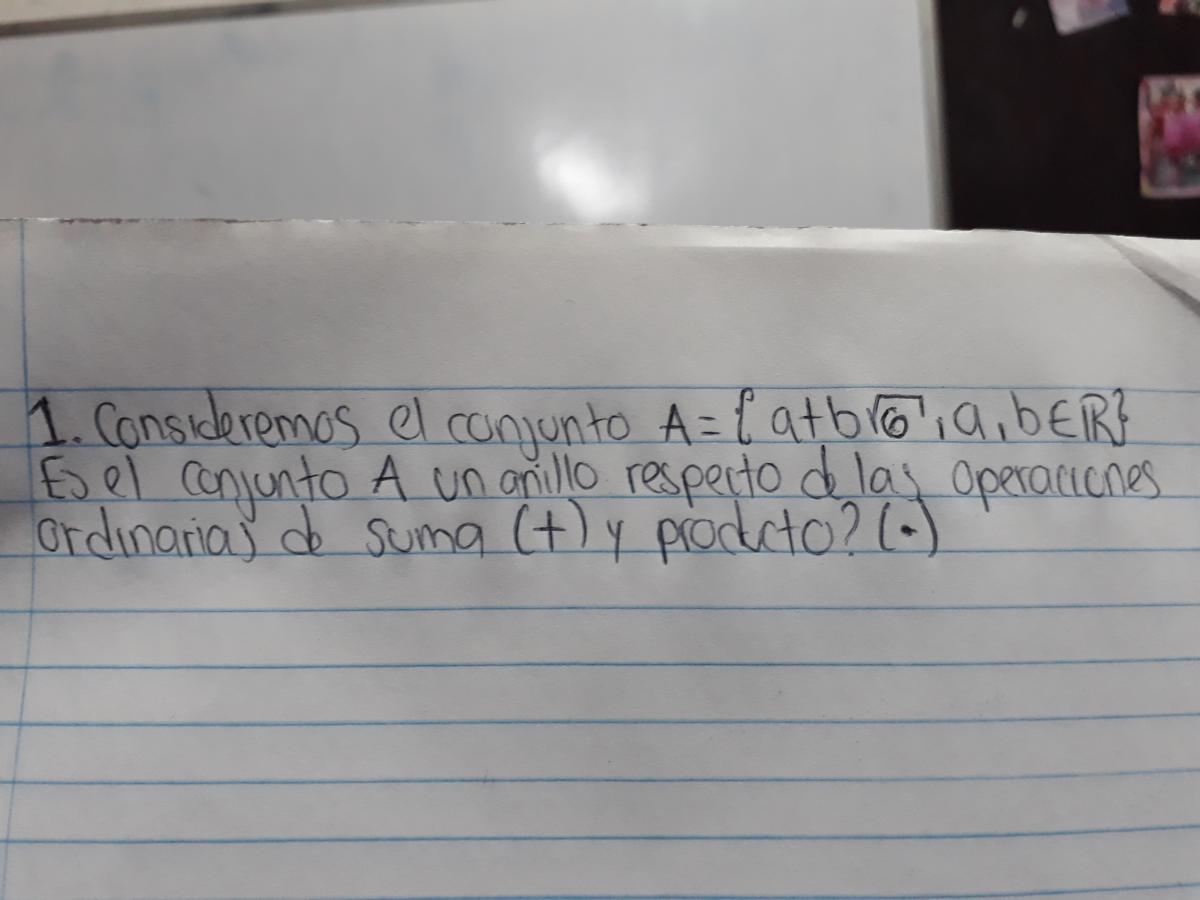 1. Consideremos el conjunto A = { a+b√6 , a, b ∈ ℝ}
Es el conjunto A un anillo respecto de las operaciones
ordinarias de suma (+) y producto? (·)